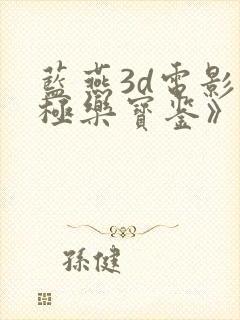 藍燕3d電影
極樂寶鉴》
孫健